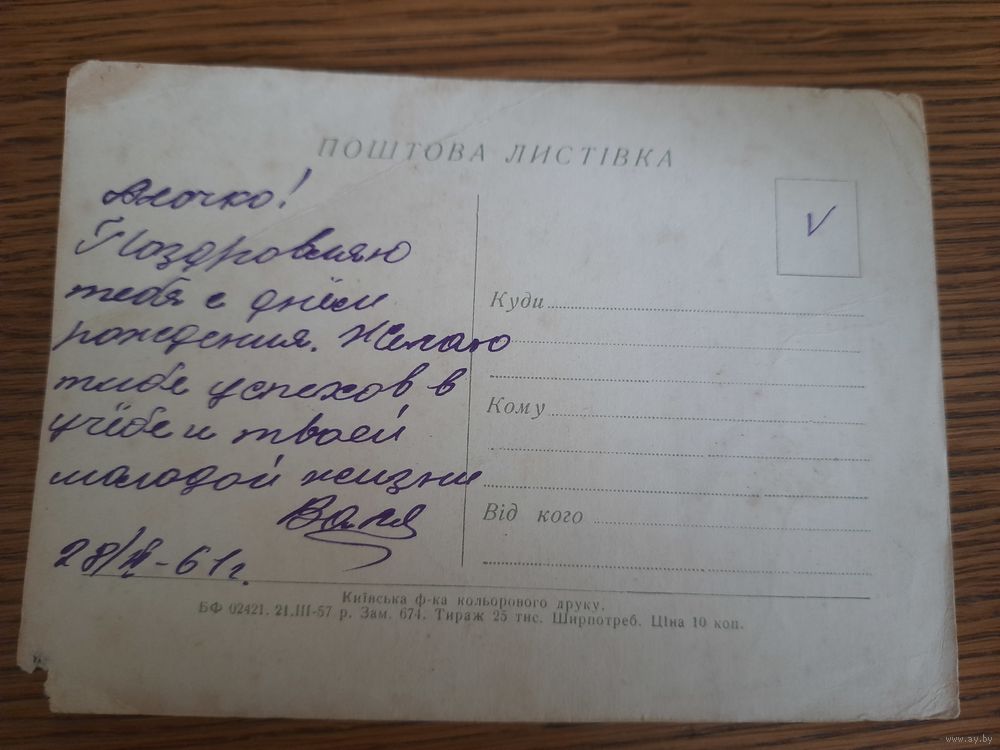 ПОШТОВА ЛИСТІВКА
Алочко!
Поздровляю
тебя с днём
рождения. Желаю
тибе успехов в
учёбе и твоей
молодой жизни
Валя
28/ -61 г.
V
Куди
Кому
Від кого
Київська ф-ка кольорового друку.
БФ 02421. 21.III-57 р. Зам. 674. Тираж 25 тис. Ширпотреб. Ціна 10 коп.
www.ay.by